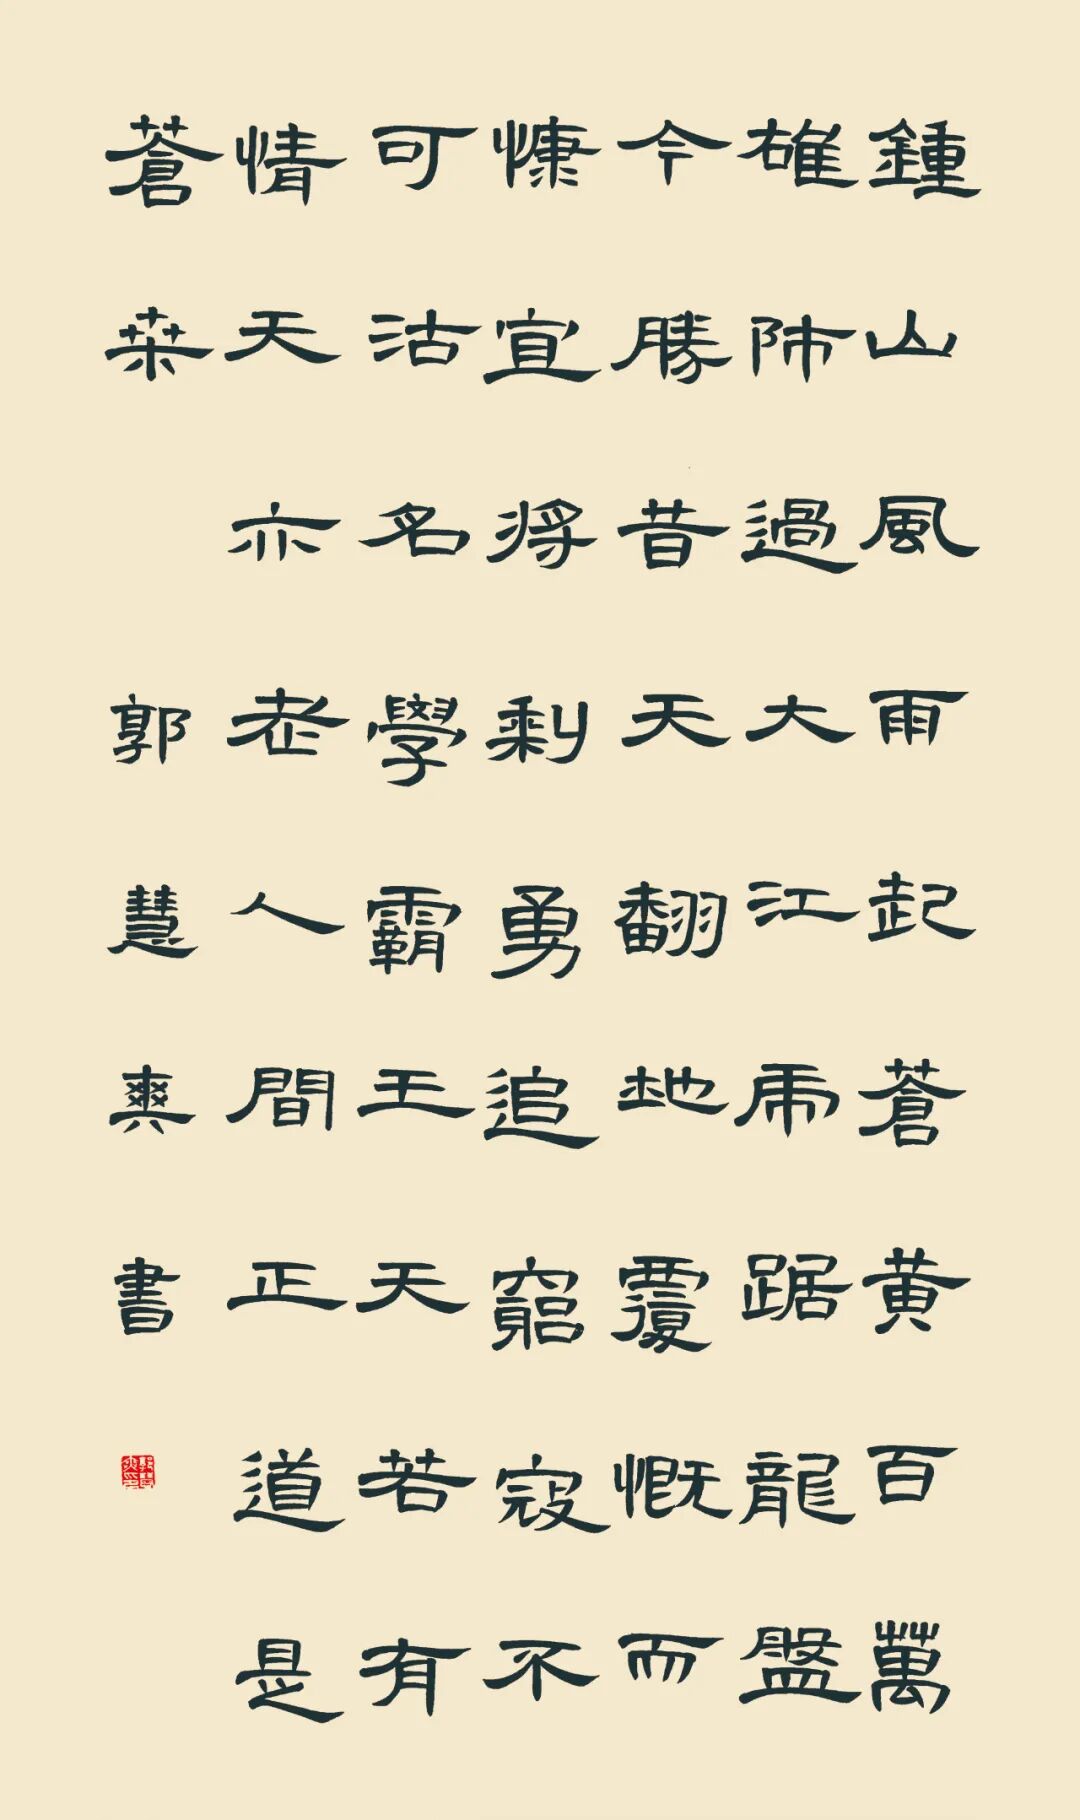 鍾山風雨起蒼黄百萬
雄師過大江虎踞龍盤
今勝昔天翻地覆慨而
慷宜將剩勇追窮寇不
可沽名學霸王天若有
情天亦老人間正道是
蒼桑 郭慧爽書